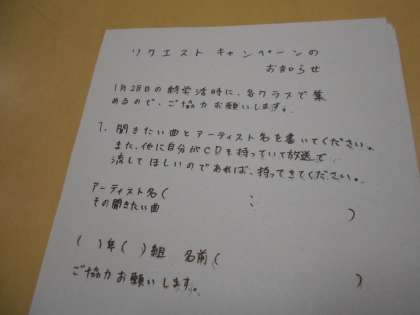 リクエスト キャンペーンの
お知らせ
1月28日の終学活時に、各クラスで集
めるので、ご協力お願いします。
1. 聞きたい曲とアーティスト名を書いてください。
また、他に自分がCDを持っていて放送で
流してほしいのであれば、持ってきてください。
アーティスト名( :
その聞きたい曲 )
( )年( )組 名前( )
ご協力お願いします。